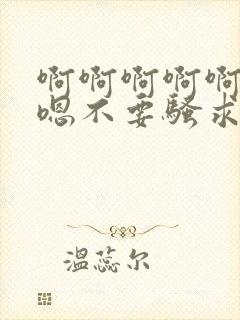 啊啊啊啊啊
嗯不要骚求
温蕊尔